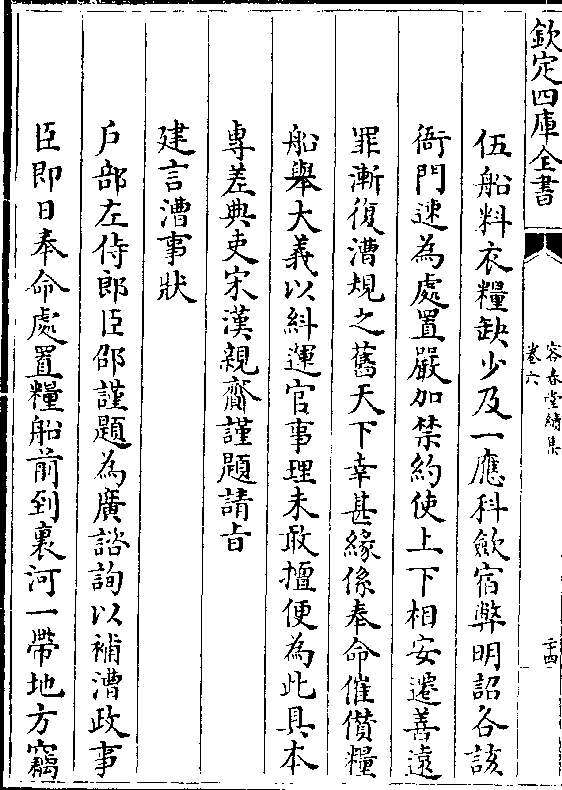 欽定四庫全書
容春堂續集
卷六
二十四
伍船料衣糧缺少及一應科歛宿弊明詔各該
衙門速為處置嚴加禁約使上下相安遷善遠
罪漸復漕規之舊天下幸甚緣係奉命催儧糧
船舉大義以糾運官事理未敢擅便為此具本
專差典吏宋漢親齎謹題請旨
建言漕事狀
戶部左侍郎臣邵謹題為廣諮詢以補漕政事
臣即日奉命處置糧船前到裏河一帶地方竊